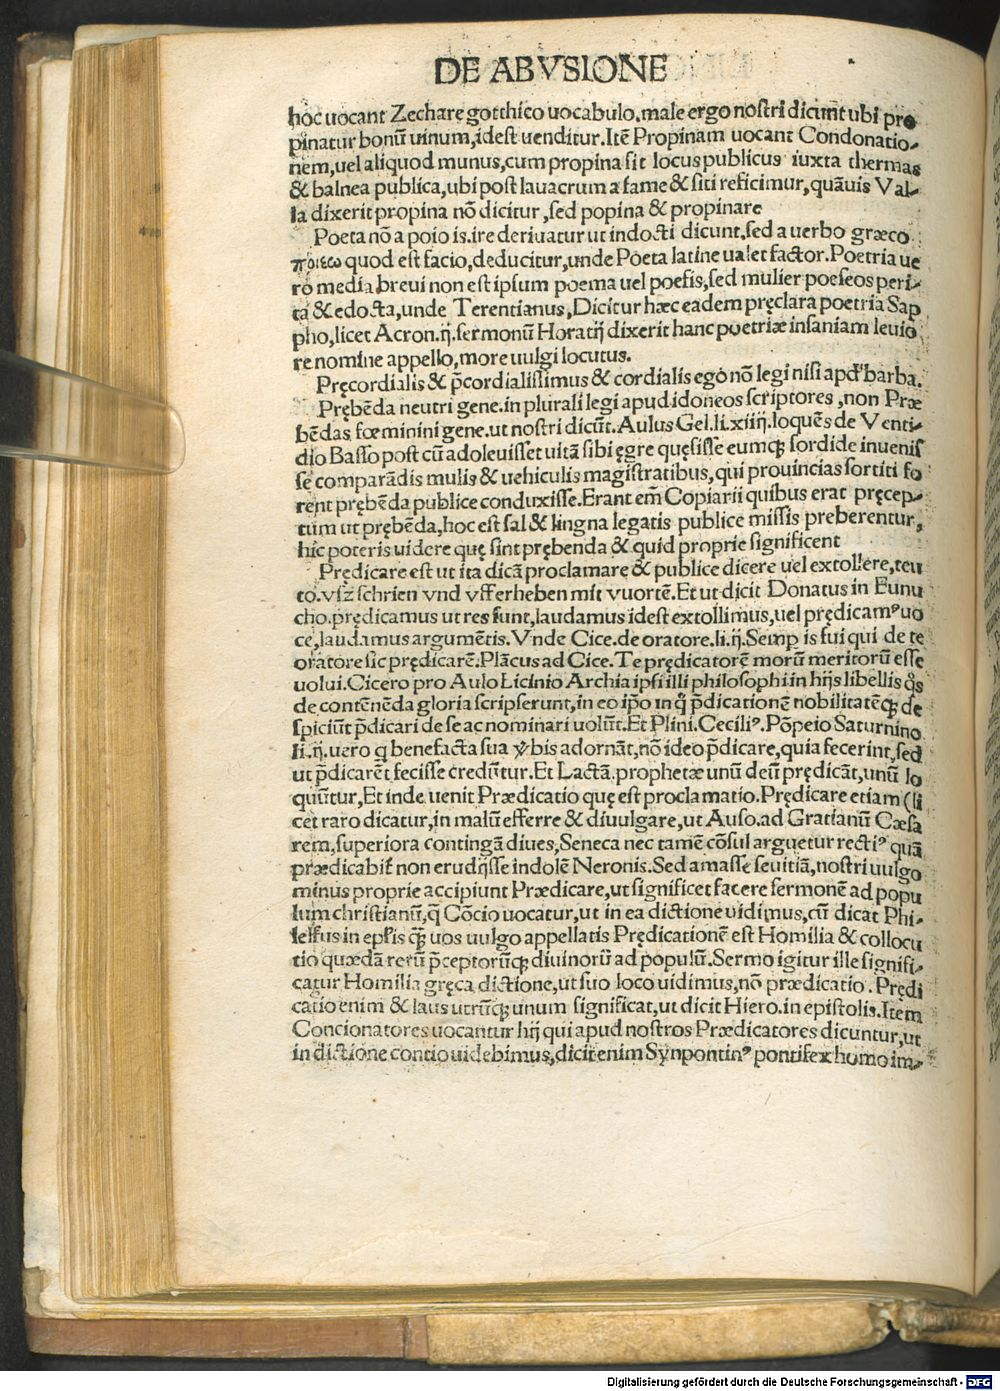 DE ABVSIONE
hoc uocant Zechare gotthico uocabulo.male ergo nostri dicunt ubi pro
pinatur bonū uinum,idest uenditur.Itē Propinam uocant Condonatio-
nem,uel aliquod munus,cum propina sit locus publicus iuxta thermas
& balnea publica,ubi post lauacrum a fame & siti reficimur,quāuis Val-
la dixerit propina nō dicitur ,sed popina & propinare
Poeta nō a poio is.ire deriuatur ut indocti dicunt,sed a uerbo græco
ποιεω quod est facio,deducitur,unde Poeta latine ualet factor.Poetria ue
ro media breui non est ipsum poema uel poesis,sed mulier poeseos peri-
ta & edocta,unde Terentianus,Dicitur hæc eadem pręclara poetria Sap
pho,licet Acron.ij.sermonū Horatij dixerit hanc poetriæ insaniam leuio
re nomine appello,more uulgi locutus.
Pręcordialis & p̄cordialissimus & cordialis ego nō legi nisi apd' barba.
Prębēda neutri gene.in plurali legi apud idoneos scriptores ,non Præ
bēdas fœminini gene.ut nostri dicūt.Aulus Gel.li.xiiij.loquēs de Venti-
dio Basso post cū adoleuisset uitā sibi ęgre quęsisse eumq; sordide inuenis
se comparādis mulis & uehiculis magistratibus,qui prouincias sortiti fo
rent prębēda publice conduxisse.Erant em̄ Copiarii quibus erat pręcep-
tum ut prębēda,hoc est sal & lingna legatis publice missis preberentur,
hic poteris uidere quę sint prębenda & quid proprie significent
Prędicare est ut ita dicā proclamare & publice dicere uel extollere,teu
to.vſz schrien vnd vfferheben mit vuortē.Et ut dicit Donatus in Eunu
cho.prędicamus ut res sunt,laudamus idest extollimus,uel prędicamꝰ uo
ce,laudamus argumētis.Vnde Cice.de oratore.li.ij.Semp is fui qui de te
oratore sic prędicarē.Plācus ad Cice.Te prędicatorē morū meritorū esse
uolui.Cicero pro Aulo Licinio Archia ipsi illi philosophi in hijs libellis q̊s
de contēnēda gloria scripserunt,in eo ip̄o in q̊ p̄dicationē nobilitatēq; de
spiciūt p̄dicari de se ac nominari uolūt.Et Plini.Ceciliꝰ.Pōpeio Saturnino
li.ij.uero q benefacta sua ỽbis adornāt,nō ideo p̄dicare,quia fecerint,sed
ut p̄dicarēt fecisse credūtur.Et Lactā.prophetæ unū deū prędicāt,unū lo
quūtur,Et inde uenit Prædicatio quę est proclamatio.Prędicare etiam (li
cet raro dicatur,in malū efferre & diuulgare,ut Auso.ad Gratianū Cæsa
rem,superiora contingā diues,Seneca nec tamē cōsul arguetur rectiꝰ quā
prædicabit non erudijsse indolē Neronis.Sed amasse seuitiā,nostri uulgo
minus proprie accipiunt Prædicare,ut significet facere sermonē ad popu
lum christianū,q̄ Cōcio uocatur,ut in ea dictione uidimus,cū dicat Phi-
lelfus in epl'is q̄ uos uulgo appellatis Prędicationē est Homilia & collocu
tio quædā rerū p̄ceptorūq; diuinorū ad populū.Sermo igitur ille signifi-
catur Homilia gręca dictione,ut suo loco uidimus,nō prædicatio.Prędi
catio enim & laus utrūq; unum significat,ut dicit Hiero.in epistolis.Item
Concionatores uocantur hij qui apud nostros Prædicatores dicuntur,ut
in dictione contio uidebimus,dicit enim Synpontinꝰ pontifex homo im-
Digitalisierung gefördert durch die Deutsche Forschungsgemeinschaft - DFG